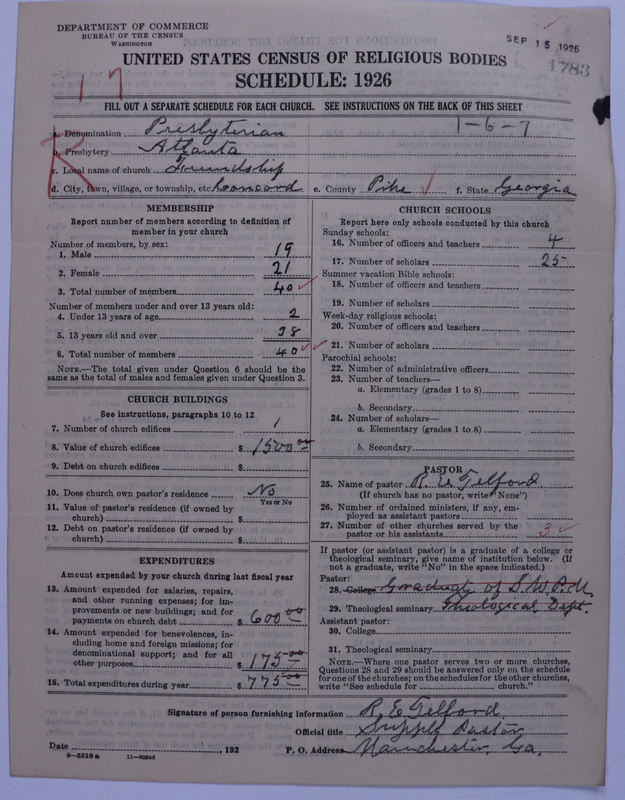 DEPARTMENT OF COMMERCE
BUREAU OF THE CENSUS
WASHINGTON
SEP 15 1926
1783
UNITED STATES CENSUS OF RELIGIOUS BODIES
SCHEDULE: 1926
17
FILL OUT A SEPARATE SCHEDULE FOR EACH CHURCH. SEE INSTRUCTIONS ON THE BACK OF THIS SHEET
R
1-6-7
a. Denomination Presbyterian
b. Presbytery Atlanta
c. Local name of church Friendship
d. City, town, village, or township, etc. Concord e. County Pike f. State Georgia
MEMBERSHIP
Report number of members according to definition of
member in your church
Number of members, by sex:
1. Male 19
2. Female 21
3. Total number of members 40
Number of members under and over 13 years old:
4. Under 13 years of age 2
5. 13 years old and over 38
6. Total number of members 40
NOTE.—The total given under Question 6 should be
same as the total of males and females given under Question 3.
CHURCH BUILDINGS
See instructions, paragraphs 10 to 12
7. Number of church edifices 1
8. Value of church edifices $ 1500 00
9. Debt on church edifices $
10. Does church own pastor's residence No
Yes or No
11. Value of pastor's residence (if owned by
church) $
12. Debt on pastor's residence (if owned by
church) $
EXPENDITURES
Amount expended by your church during last fiscal year
13. Amount expended for salaries, repairs,
and other running expenses; for im-
provements or new buildings; and for
payments on church debt $ 600 00
14. Amount expended for benevolences, in-
cluding home and foreign missions; for
denominational support; and for all
other purposes $ 175 00
15. Total expenditures during year $ 775 00
CHURCH SCHOOLS
Report here only schools conducted by this church
Sunday schools:
16. Number of officers and teachers 4
17. Number of scholars 25
Summer vacation Bible schools:
18. Number of officers and teachers
19. Number of scholars
Week-day religious schools:
20. Number of officers and teachers
21. Number of scholars
Parochial schools:
22. Number of administrative officers
23. Number of teachers—
a. Elementary (grades 1 to 8)
b. Secondary
24. Number of scholars—
a. Elementary (grades 1 to 8)
b. Secondary
PASTOR
25. Name of pastor R. E. Telford
(If church has no pastor, write "None")
26. Number of ordained ministers, if any, em-
ployed as assistant pastors
27. Number of other churches served by the
pastor or his assistants 3
If pastor (or assistant pastor) is a graduate of a college or
theological seminary, give name of institution below. (If
not a graduate, write "No" in the space indicated.)
Pastor:
28. College Graduate of S. W. P. U.
29. Theological seminary Theological Dept.
Assistant pastor:
30. College
31. Theological seminary
NOTE.—Where one pastor serves two or more churches,
Questions 28 and 29 should be answered only on the schedule
for one of the churches; on the schedules for the other churches,
write "See schedule for church."
Signature of person furnishing information R. E. Telford
Official title Supply Pastor
Date , 192 P. O. Address Manchester, Ga.
8-5318 a